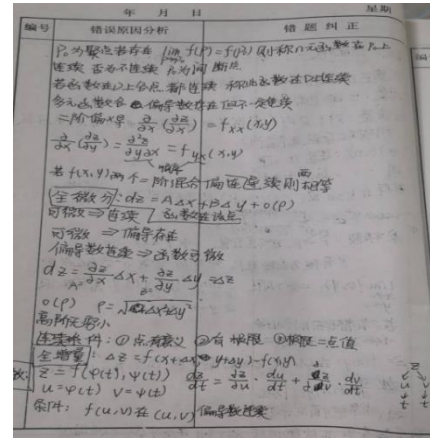 年 月 日 星期
编号 错误原因分析 错题纠正
P₀为聚点若存在 lim f(P) = f(P₀) 则称n元函数在P₀上
连续 否则不连续 P₀为间断点
若函数在D上各点都连续 称此函数在D上连续
多元函数 偏导数存在但不一定连续
二阶偏导 ∂/∂x (∂z/∂x) = fxx(x,y)
∂/∂x (∂z/∂y) = ∂²z/∂y∂x = fyx(x,y)
若f(x,y)两个二阶混合偏导连续则两相等
全微分: dz = AΔx + BΔy + o(ρ)
可微 ⇒ 连续 函数在该点
可微 ⇒ 偏导存在
偏导数连续 ⇒ 函数可微
dz = ∂z/∂x Δx + ∂z/∂y Δy ≈ Δz
o(ρ) ρ = √Δx²+Δy²
高阶无穷小
连续条件: ① 点有意义 ② 有极限 ③ 极限=点值
全增量: Δz = f(x+Δx, y+Δy) - f(x,y)
z = f(φ(t), ψ(t)) dz/dt = ∂z/∂u · du/dt + ∂z/∂v · dv/dt
u = φ(t) v = ψ(t)
条件: f(u,v)在(u,v)偏导数连续